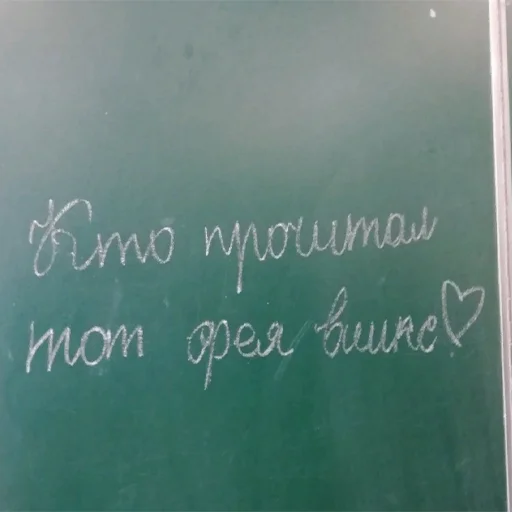 Кто прочитал
тот фея винкс♡